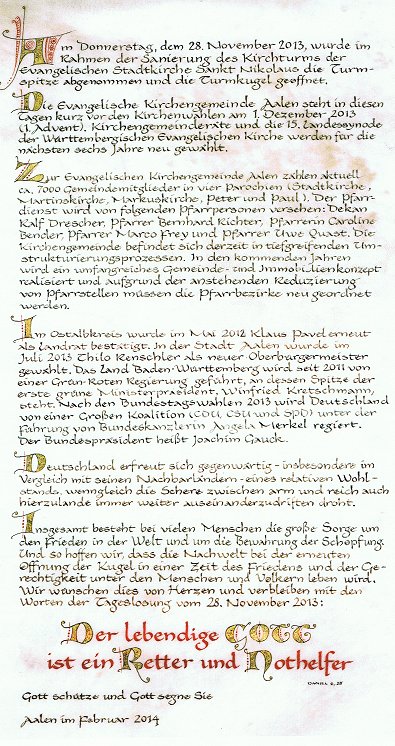 Am Donnerstag, dem 28. November 2013, wurde im
Rahmen der Sanierung des Kirchturms der
Evangelischen Stadtkirche Sankt Nikolaus die Turm-
spitze abgenommen und die Turmkugel geöffnet.
Die Evangelische Kirchengemeinde Aalen steht in diesen
Tagen kurz vor den Kirchenwahlen am 1. Dezember 2013
(1. Advent). Kirchengemeinderäte und die 15. Landessynode
der Württembergischen Evangelischen Kirche werden für die
nächsten sechs Jahre neu gewählt.
Zur Evangelischen Kirchengemeinde Aalen zählen aktuell
ca. 7000 Gemeindemitglieder in vier Parochien (Stadtkirche,
Martinskirche, Markuskirche, Peter und Paul). Der Pfarr-
dienst wird von folgenden Pfarrpersonen versehen: Dekan
Ralf Drescher, Pfarrer Bernhard Richter, Pfarrerin Caroline
Bender, Pfarrer Marco Frey und Pfarrer Uwe Quast. Die
Kirchengemeinde befindet sich derzeit in tiefgreifenden Um-
strukturierungsprozessen. In den kommenden Jahren
wird ein umfangreiches Gemeinde- und Immobilienkonzept
realisiert und aufgrund der anstehenden Reduzierung
von Pfarrstellen müssen die Pfarrbezirke neu geordnet
werden.
Im Ostalbkreis wurde im Mai 2012 Klaus Pavel erneut
als Landrat bestätigt. In der Stadt Aalen wurde im
Juli 2013 Thilo Rentschler als neuer Oberbürgermeister
gewählt. Das Land Baden-Württemberg wird seit 2011 von
einer Grün-Roten Regierung geführt, an dessen Spitze der
erste grüne Ministerpräsident, Winfried Kretschmann,
steht. Nach den Bundestagswahlen 2013 wird Deutschland
von einer Großen Koalition (CDU, CSU und SPD) unter der
Führung von Bundeskanzlerin Angela Merkel regiert.
Der Bundespräsident heißt Joachim Gauck.
Deutschland erfreut sich gegenwärtig - insbesondere im
Vergleich mit seinen Nachbarländern - eines relativen Wohl-
stands, wenngleich die Schere zwischen arm und reich auch
hierzulande immer weiter auseinanderzudriften droht.
Insgesamt besteht bei vielen Menschen die große Sorge um
den Frieden in der Welt und um die Bewahrung der Schöpfung.
Und so hoffen wir, dass die Nachwelt bei der erneuten
Öffnung der Kugel in einer Zeit des Friedens und der Ge-
rechtigkeit unter den Menschen und Völkern leben wird.
Wir wünschen dies von Herzen und verbleiben mit den
Worten der Tageslosung vom 28. November 2013:
Der lebendige GOTT
ist ein Retter und Nothelfer
DANIEL 6, 28
Gott schütze und Gott segne Sie
Aalen im Februar 2014